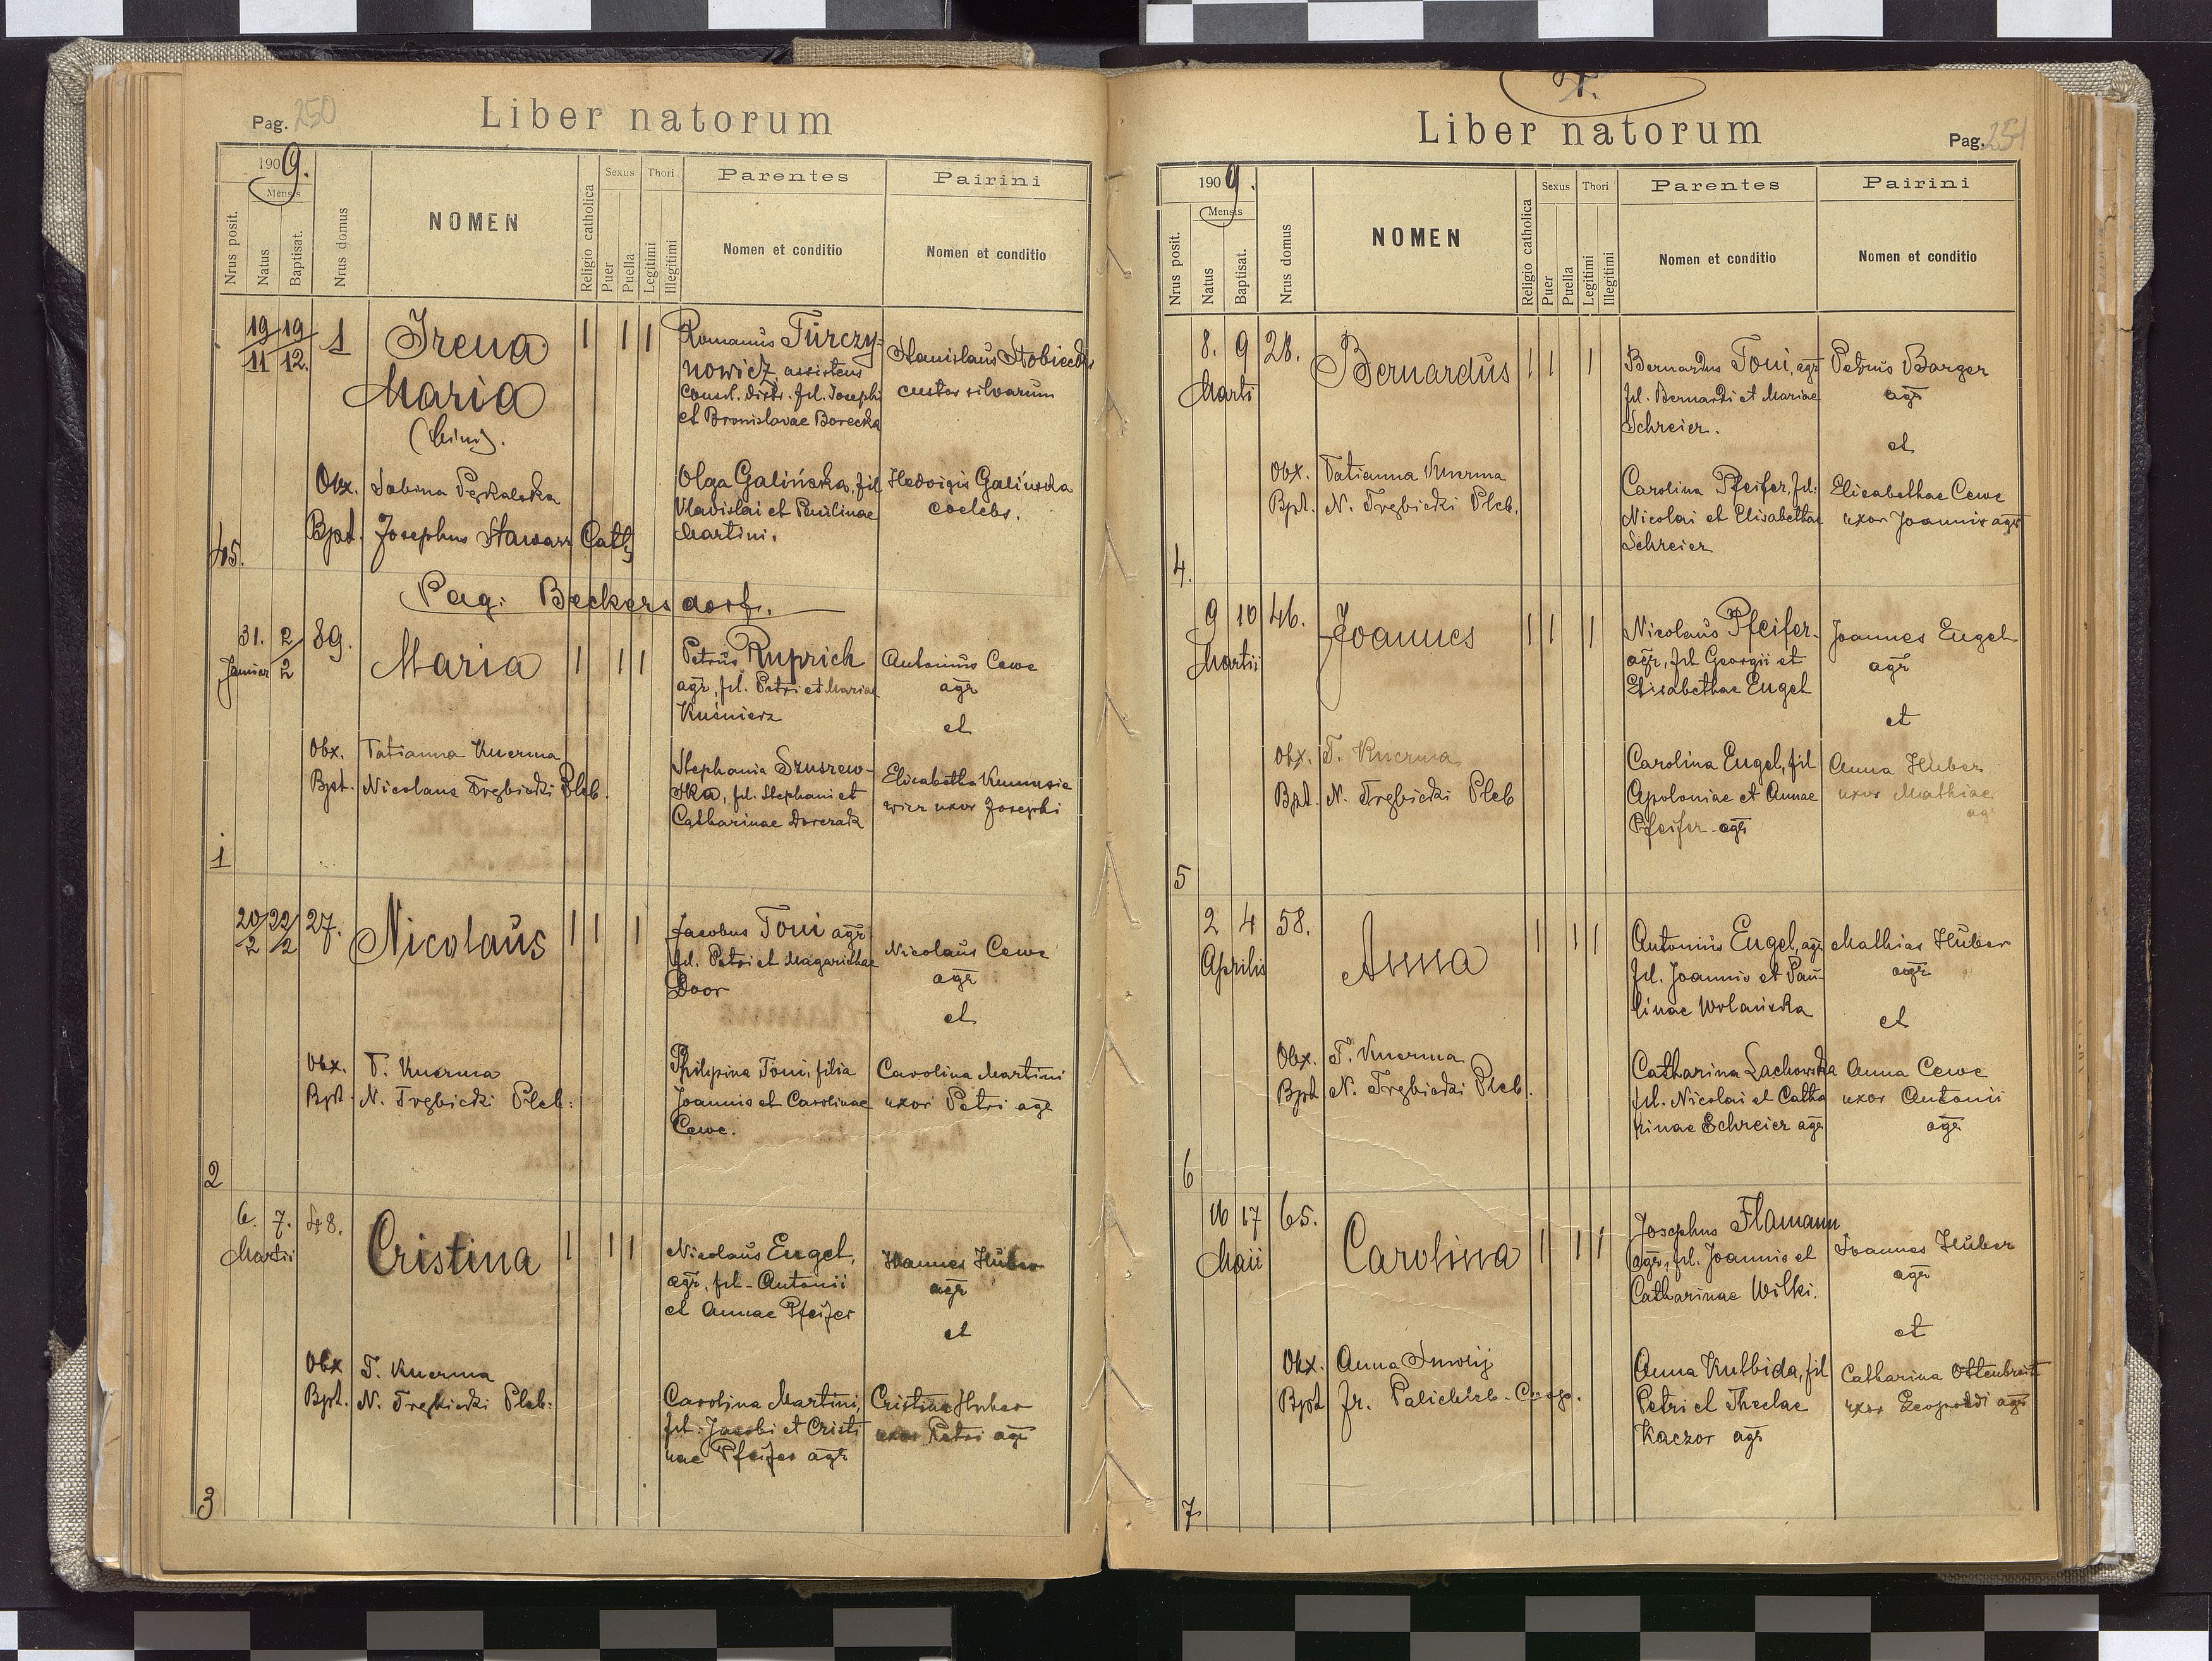 Pag. 250
Liber natorum
1909.
Mensis
Nrus posit.
Natus
Baptisat.
Nrus domus
NOMEN
Religio catholica
Sexus
Puer
Puella
Thori
Legitimi
Illegitimi
Parentes
Nomen et conditio
Pairini
Nomen et conditio
45.
19/11 19/12. 1
Irena
Maria
(bini).
Obx. Sabina
Bpt. Josephus Stawarz Cath
Romanus Turczy-
nowicz assistens
fil. Josephi
et Bronislavae Borecka
Olga Galińska, fil
Vladislai et Paulinae
Martini.
Stanislaus
custos silvarum
Hedvigis Galińska
coelebs.
Pag: Beckersdorf.
1
31. 2/2 89.
Januar
Maria
Obx. Tatianna Kucrma
Bpt. Nicolaus Trębicki Pleb.
Petrus Ruprich
agr, fil. Petri et Mariae
Kuśnierz
Stephania Szuszew-
ska, fil. Stephani et
Catharinae
Antonius Cewe
agr
et
Elisabetha
wicz uxor Josephi
2
20/2 22/2 27.
Nicolaus
Obx. T. Kucrma
Bpt. N. Trębicki Pleb:
Jacobus Toni agr
fil. Petri et Magarithae
Door
Philipina Toni, filia
Joannis et Carolinae
Cewe.
Nicolaus Cewe
agr
et
Carolina Martini
uxor Petri agr
3
6. 7. 48.
Martii
Cristina
Obx T. Kucrma
Bpt. N. Trębicki Pleb:
Nicolaus Engel,
agr, fil. Antonii
et Annae Pfeifer
Carolina Martini,
fil. Jacobi et Cristi
nae Pfeifer agr
Joannes Huber
agr
et
Cristina Huber
uxor Petri agr
Liber natorum
Pag. 251
1909.
Mensis
Nrus posit.
Natus
Baptisat.
Nrus domus
NOMEN
Religio catholica
Sexus
Puer
Puella
Thori
Legitimi
Illegitimi
Parentes
Nomen et conditio
Pairini
Nomen et conditio
4.
8. 9 28.
Marti
Bernardus
Obx. Tatianna Kucrma
Bpt. N. Trębicki Pleb.
Bernardus Toni, agr
fil. Bernardi et Mariae
Schreier.
Carolina Pfeifer, fil.
Nicolai et Elisabethae
Schreier
Petrus Barger
agr
et
Elisabethae Cewe
uxor Joannis agr
5
9 10 46.
Martii
Joannes
Obx. T. Kucrma
Bpt. N. Trębicki Pleb
Nicolaus Pfeifer
agr, fil Georgii et
Elisabethae Engel
Carolina Engel, fil
Apoloniae et Annae
Pfeifer agr
Joannes Engel
agr
et
Anna Huber
uxor Mathiae
agr
6
2 4 58.
Aprilis
Anna
Obx. T. Kucrma
Bpt N. Trębicki Pleb.
Antonius Engel, agr
fil. Joannis et Pau-
linae Wolańska
Catharina Lachowska
fil. Nicolai et Catha
rinae Schreier agr
Mathias Huber
agr
et
Anna Cewe
uxor Antonii
agr
7
16 17 65.
Maii
Carolina
Obx. Anna
Bpt Fr. Palichleb
Josephus Flamann
agr, fil. Joannis et
Catharinae Wilki.
Anna Kulbida, fil
Petri et Theclae
Kaczor agr
Joannes Huber
agr
et
Catharina Ottenbreit
uxor Leopoldi agr